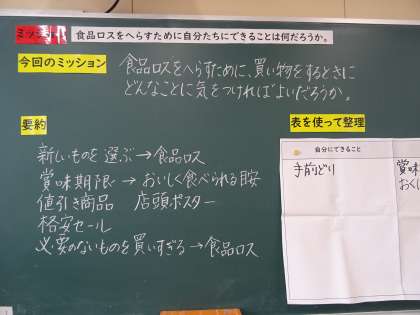 ミッション 食品ロスをへらすために自分たちにできることは何だろうか。
今回のミッション
食品ロスをへらすために、買い物をするときに
どんなことに気をつければよいだろうか。
要約
新しいものを選ぶ→食品ロス
賞味期限→おいしく食べられる目安
値引き商品 店頭ポスター
格安セール
必要のないものを買いすぎる→食品ロス
表を使って整理
自分にできること
手前どり
賞味
おくし